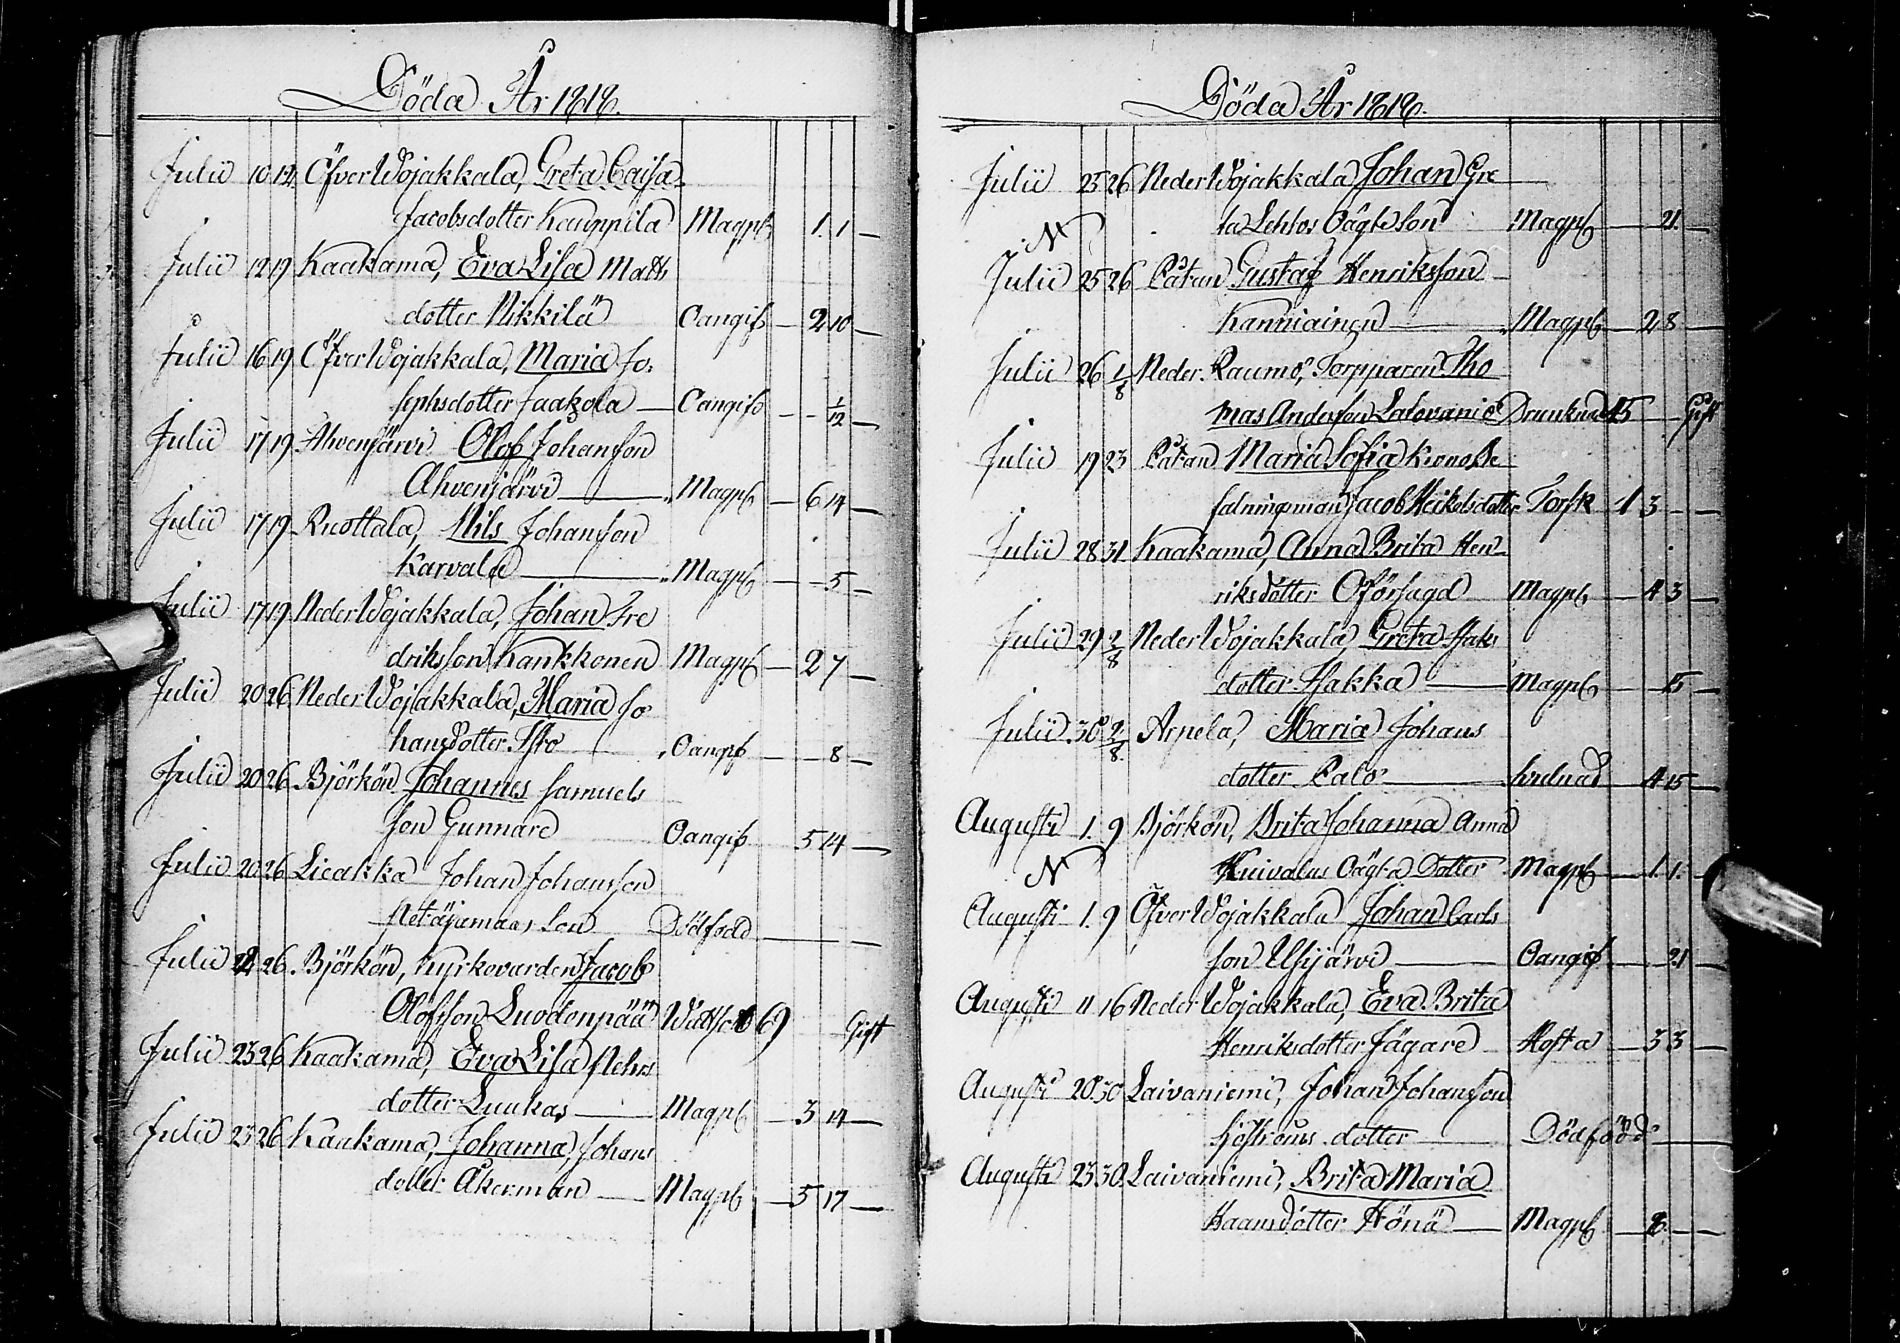 Döda År 1818.
Julii 10 12 Öfver Wojakkala, Greta Caisa
Jacobsdotter Karppila Magpl. 1. 1 —
Julii 12 19 Kaakama, Eva Lisa Matts
dotter Nikkilä Oangif. — 2 10 —
Julii 16 19 Öfver Wojakkala, Maria Jo-
sephsdotter Jaakola — Oangif. — — 1/12 —
Julii 17 19 Ahvenjärvi Olof Johansson
Ahvenjärvi — Magpl. — 6 14 —
Julii 17 19 Ruottala, Nils Johansson
Karvala — Magpl. — — 5 —
Julii 17 19 Neder Wojakkala, Johan Fre
driksson Kankkonen Magpl. — 2 7 —
Julii 20 26 Neder Wojakkala, Maria Jo
hansdotter — Oangif. — — 8 —
Julii 20 26 Björkön Johannes Samuels
son Gunnare Oangif. 5 14 —
Julii 20 26 Liedakka Johan Johansson
Son Dödfödd —
Julii 22 26 Björkön, Kyrkovärden Jacob
Olofsson Luodonpää 69 Gift
Julii 23 26 Kaakama, Eva Lisa Pehrs
dotter Luukas — Magpl. — 3 14 —
Julii 23 26 Kaakama, Johanna, Johans
dotter Åkerman — Magpl. — 5 17 —
Döda År 1818.
Julii 25 26 Neder Wojakkala Johan Gre
N ta Lehtos Oägta Son Magpl. — 21. —
Julii 25 26 Påtan Gustaf Henriksson —
Kanniainen — Magpl. — 2 8 —
Julii 26 1/8 Neder Raumo, Torpparen Tho
mas Andersson Drunknad 45 — Gift
Julii 19 23 Påtan Maria Sofia Krono Be
falningsman Jacob Heikelsdotter Torsk 1 3 —
Julii 28 31 Kaakama, Anna Brita Hen
riksdotter Oförsagd Magpl. — 4 3 —
Julii 29 2/8 Neder Wojakkala Greta Isaks
dotter — Magpl. — 15 —
Julii 30 2/8 Arpela, Maria Johans
dotter Palo — 4 15 —
Augusti 1. 9 Björkön, Brita Johanna Anna
N Kuivalas Oägta Dotter Magpl. — 1. 1. —
Augusti 1. 9 Öfver Wojakkala Johan Carls
son — Oangif. — 21 —
Augusti 11 16 Neder Wojakkala, Eva Brita
Henriksdotter Jägare Hosta — 3 3 —
Augusti 20 30 Laivaniemi, Johan Johansson
Sjöströms dotter Dödfödd —
Augusti 23 30 Laivaniemi, Brita Maria
Haansdotter Hönä — Magpl. — 8. —